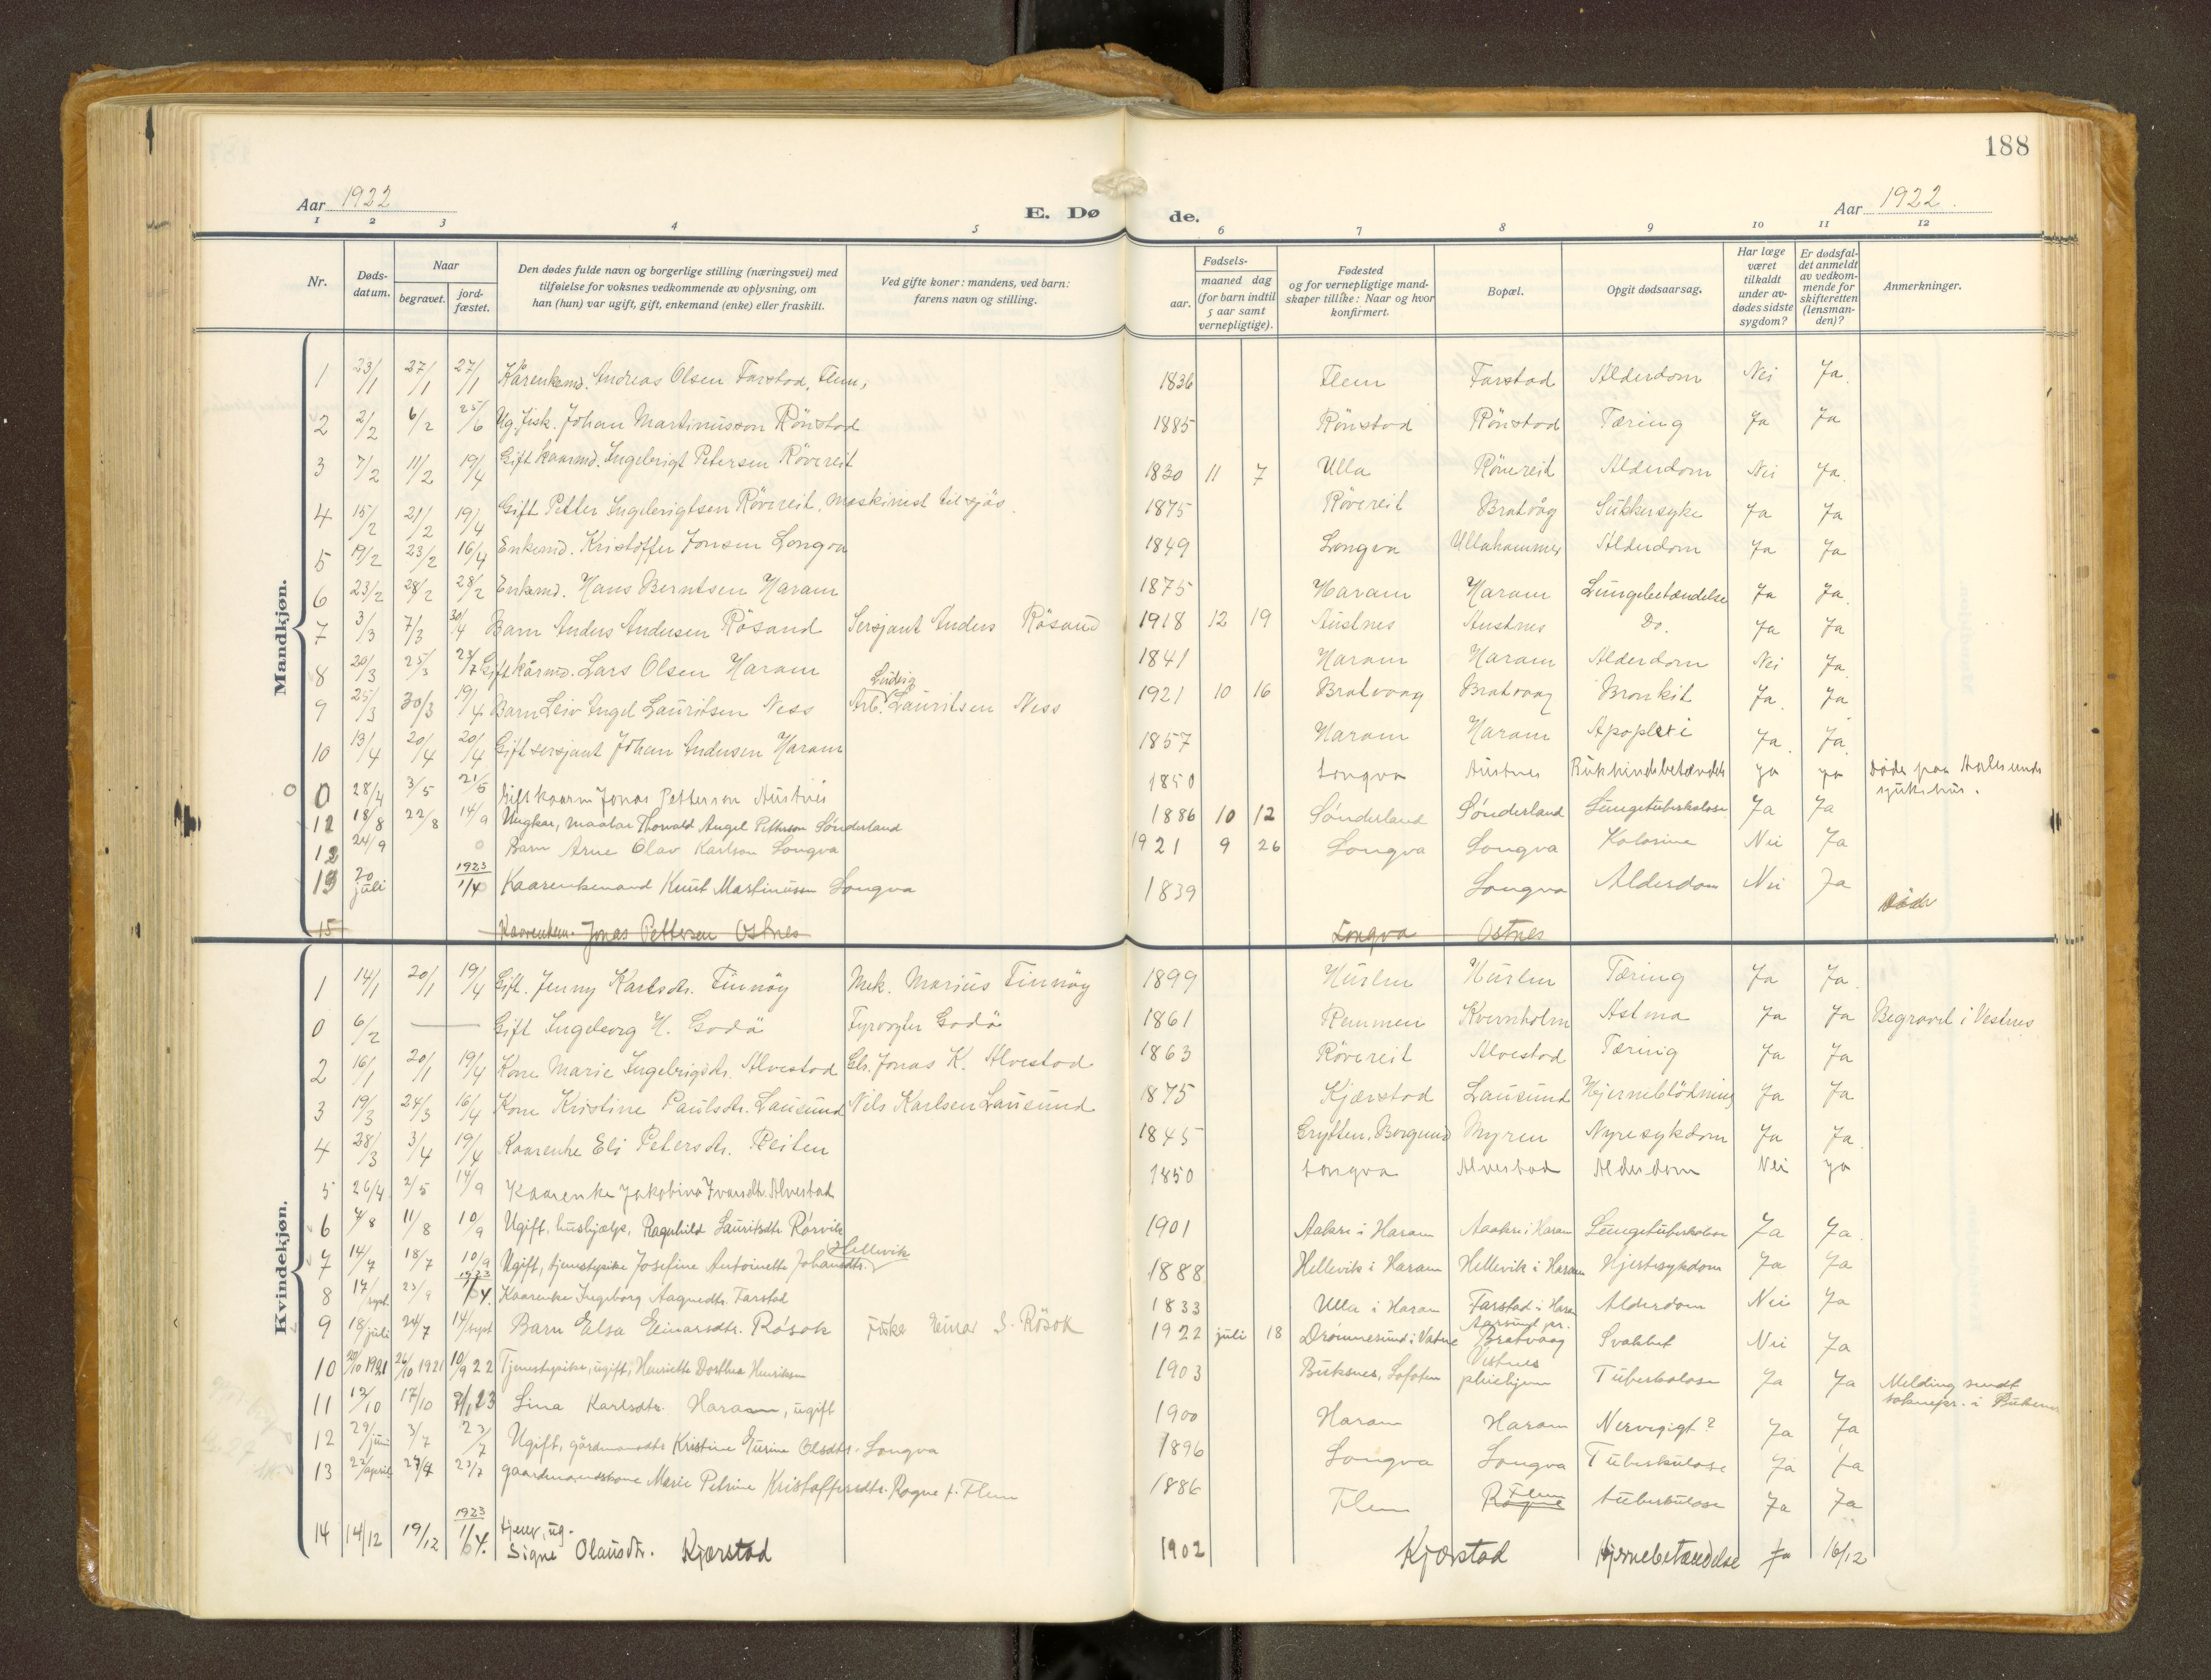 188
Aar 1922
E. Dø de.
Aar 1922.
1 2 3 4 5 6 7 8 9 10 11 12
Nr. Døds-datum. Naar begravet. jord-fæstet. Den dødes fulde navn og borgerlige stilling (næringsvei) med tilføielse for voksnes vedkommende av oplysning, om han (hun) var ugift, gift, enkemand (enke) eller fraskilt. Ved gifte koner: mandens, ved barn: farens navn og stilling. Fødsels- aar. maaned dag (for barn indtil 5 aar samt vernepligtige). Fødested og for vernepligtige mand-skaper tillike: Naar og hvor konfirmert. Bopæl. Opgit dødsaarsag. Har læge været tilkaldt under av-dødes sidste sygdom? Er dødsfal-det anmeldt av vedkom-mende for skifteretten (lensman-den)? Anmerkninger.
Mandkjøn.
1 23/1 27/1 27/1 Kårenkemd. Andreas Olsen Farstad, Flem, 1836 Flem Farstad Alderdom Nei Ja.
2 2/2 6/2 25/6 Ug. fisk. Johan Martinusson Rönstad 1885 Rönstad Rönstad Tæring Ja Ja
3 7/2 11/2 19/4 Gift kaarmd. Ingebrigt Petersen Rövereit 1830 11 7 Ulla Rövereit Alderdom Nei Ja.
4 15/2 21/2 19/4 Gift Petter Ingebrigtsen Rövereit, maskinist tilsjös. 1875 Rövereit Bratvåg Sukkersyke Ja Ja
5 19/2 23/2 16/4 Enkemd. Kristoffer Jonsen Longva 1849 Longva Ullahammer Alderdom Ja Ja
6 23/2 28/2 28/2 Enkemd. Hans Berntsen Haram 1875 Haram Haram Lungebetændelse Ja Ja.
7 3/3 7/3 30/4 Barn Anders Andersen Rösand Sersjant Anders Rösand 1918 12 19 Austnes Austnes Do. Ja Ja
8 20/3 25/3 23/7 Gift kårmd. Lars Olsen Haram 1841 Haram Haram Alderdom Nei Ja
9 25/3 30/3 19/4 Barn Leiv Ingel Lauritsen Ness Arb. Ludvig Lauritsen Ness 1921 10 16 Bratvaag Bratvaag Bronkit Ja. Ja
10 13/4 20/4 20/4 Gift sersjant Johan Andersen Haram 1857 Haram Haram Apoplexi Ja. Ja.
0 28/4 3/5 21/5 Gift kaarm Jonas Petterson Austnes 1850 Longva Austnes Bukhindebetændels Ja Ja Døde paa Aalesunds sjukehus.
11 18/8 22/8 14/9 Ungkar, maalar Thorvald Angel Petterson Sönderland 1886 10 12 Sönderland Sönderland Lungetuberkolose Ja Ja
12 24/9 Barn Arne Olav Karlson Longva 1921 9 26 Longva Longva Kolorine Nei Ja
13 20 juli 1923 1/4 Kaarenkemand Knut Martinusen Longva 1839 Longva Alderdom Nei Ja
15 Kaarenkem. Jonas Pettersen Ostnes Longva Ostnes Døde
Kvindekjøn.
1 14/1 20/1 19/4 Gift. Jenny Karlsdtr. Finnöy Mek. Marius Finnöy 1899 Huslen Huslen Tæring Ja Ja.
0 6/2 Gift Ingeborg H. Godö Fyrvogter Godö 1861 Remmen Kvernholm Astma Ja Ja Begravd i Vestnes
2 16/1 20/1 19/4 Kone Marie Ingebrigtsdtr. Alvestad Gbr. Jonas K. Alvestad 1863 Rövereit Alvestad Tæring Ja Ja
3 19/3 24/3 16/4 Kone Kristine Paulsdtr. Lausund Nils Karlsen Lausund 1875 Kjærstad Lausund Hjerneblödning Ja Ja
4 28/3 3/4 19/4 Kaarenke Eli Petersdtr. Reiten 1845 Grytten, Borgund Myren Nyresykdom Ja Ja.
5 26/4 2/5 14/9 Kaarenke Jakobina Ivarsdtr. Alvestad 1850 Longva Alvestad Alderdom Nei Ja
6 4/8 11/8 10/9 Ugift. hushjælp, Ragnhild Lauritsdtr Rörvik 1901 Aakre i Haram Aakre i Haram Lungetuberkolose Ja Ja.
7 14/7 18/7 10/9 Ugift, tjenestepike Josefine Antoinette Johansdtr. Hellevik 1888 Hellevik i Haram Hellevik i Haram Hjertesykdom Ja Ja
8 17/sept 23/9 1923 1/4. Kaarenke Ingeborg Aagnedtr. Farstad 1833 Ulla i Haram Farstad i Haram Alderdom Nei Ja
9 18/juli 24/7 14/sept Barn Elsa Einarsdtr. Rösok Fisker Einar S. Rösok 1922 juli 18 Drömmesund i Vatne Aarsund pr. Bratvaag Svakhet Nei Ja
10 20/10 1921 26/10 1921 10/9 22 Tjenestepike, ugift, Henriette Dorthea Henriksen 1903 Buksnes, Lofoten Vestnes pleiehjem Tuberkolose Ja Ja Melding sendt soknepr. i Buksnes
11 12/10 17/10 7/1 23 Lina Karlsdtr. Haram, ugift 1900 Haram Haram Nervegigt? Ja Ja
12 29/juni 3/7 23/7 Ugift, gårdmandsdtr Kristine Gurine Olsdtr. Longva 1896 Longva Longva Tuberkulose Ja Ja
13 22/april 27/4 23/7 gaardmandskone Marie Petrine Kristoffersdtr. Rogne f. Flem 1886 Flem Flem Rogne tuberkulose Ja Ja
14 14/12 19/12 1923 1/4. tjener, ug. Signe Olausdtr. Kjærstad 1902 Kjærstad Hjernebetændelse Ja 16/12